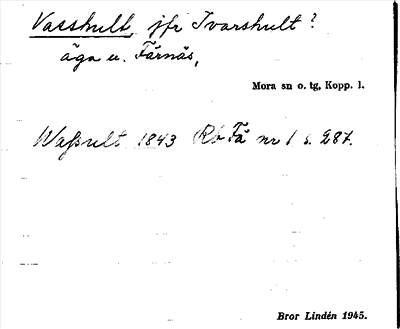 Vasshult, jfr Tvarshult?
äga u. Färnäs,
Mora sn o. tg, Kopp. l.
Wassult 1843 Rb Fä nr 1 s. 287.
Bror Lindén 1945.